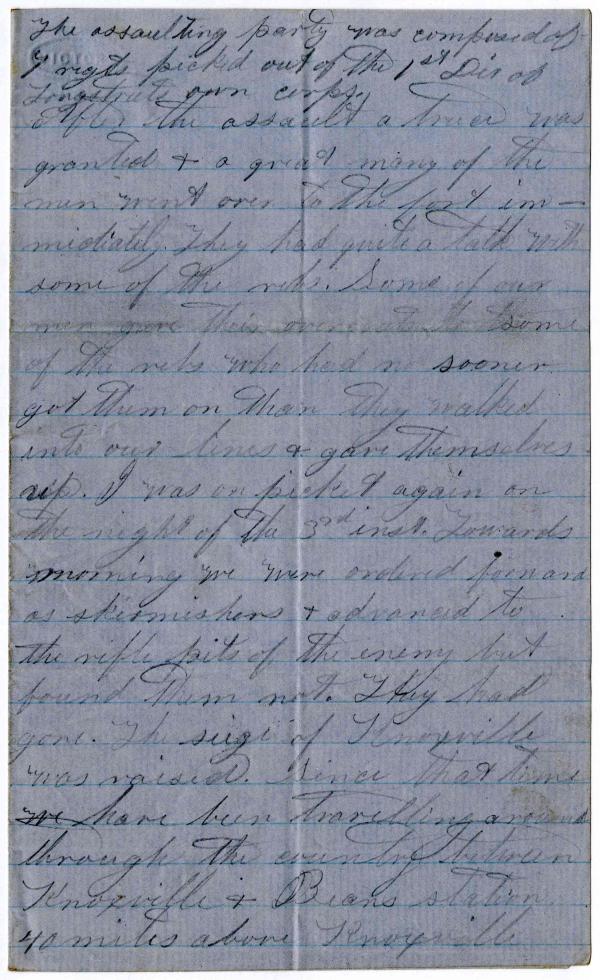 The assaulting party was composed of
7 regts picked out of the 1st Div of
Longstreets own corps,
After the assault a truce was
granted & a great many of the
men went over to the fort im-
midiately. They had quite a talk with
some of the rebs. Some of our
men gave their overcoats to some
of the rebs who had no sooner
got them on than they walked
into our lines & gave themselves
up. I was on picket again on
the night of the 3rd inst. Towards
morning we were ordered forward
as skirmishers & advanced to
the rifle pits of the enemy but
found them not. They had
gone. The siege of Knoxville
was raised. Since that time
we have been travelling around
through the country between
Knoxville & Beans station
40 miles above Knoxville